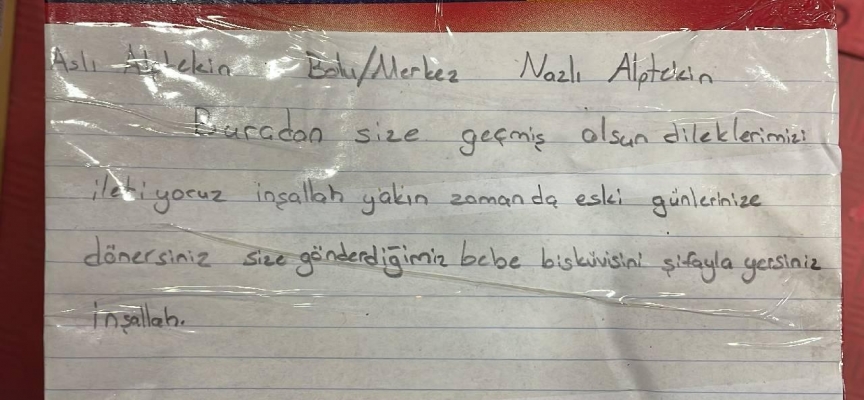 Aslı Alptekin Bolu/Merkez Nazlı Alptekin
Buradan size geçmiş olsun dileklerimizi
iletiyoruz inşallah yakın zamanda eski günlerinize
dönersiniz size gönderdiğimiz bebe bisküvisini şifayla yersiniz
inşallah.